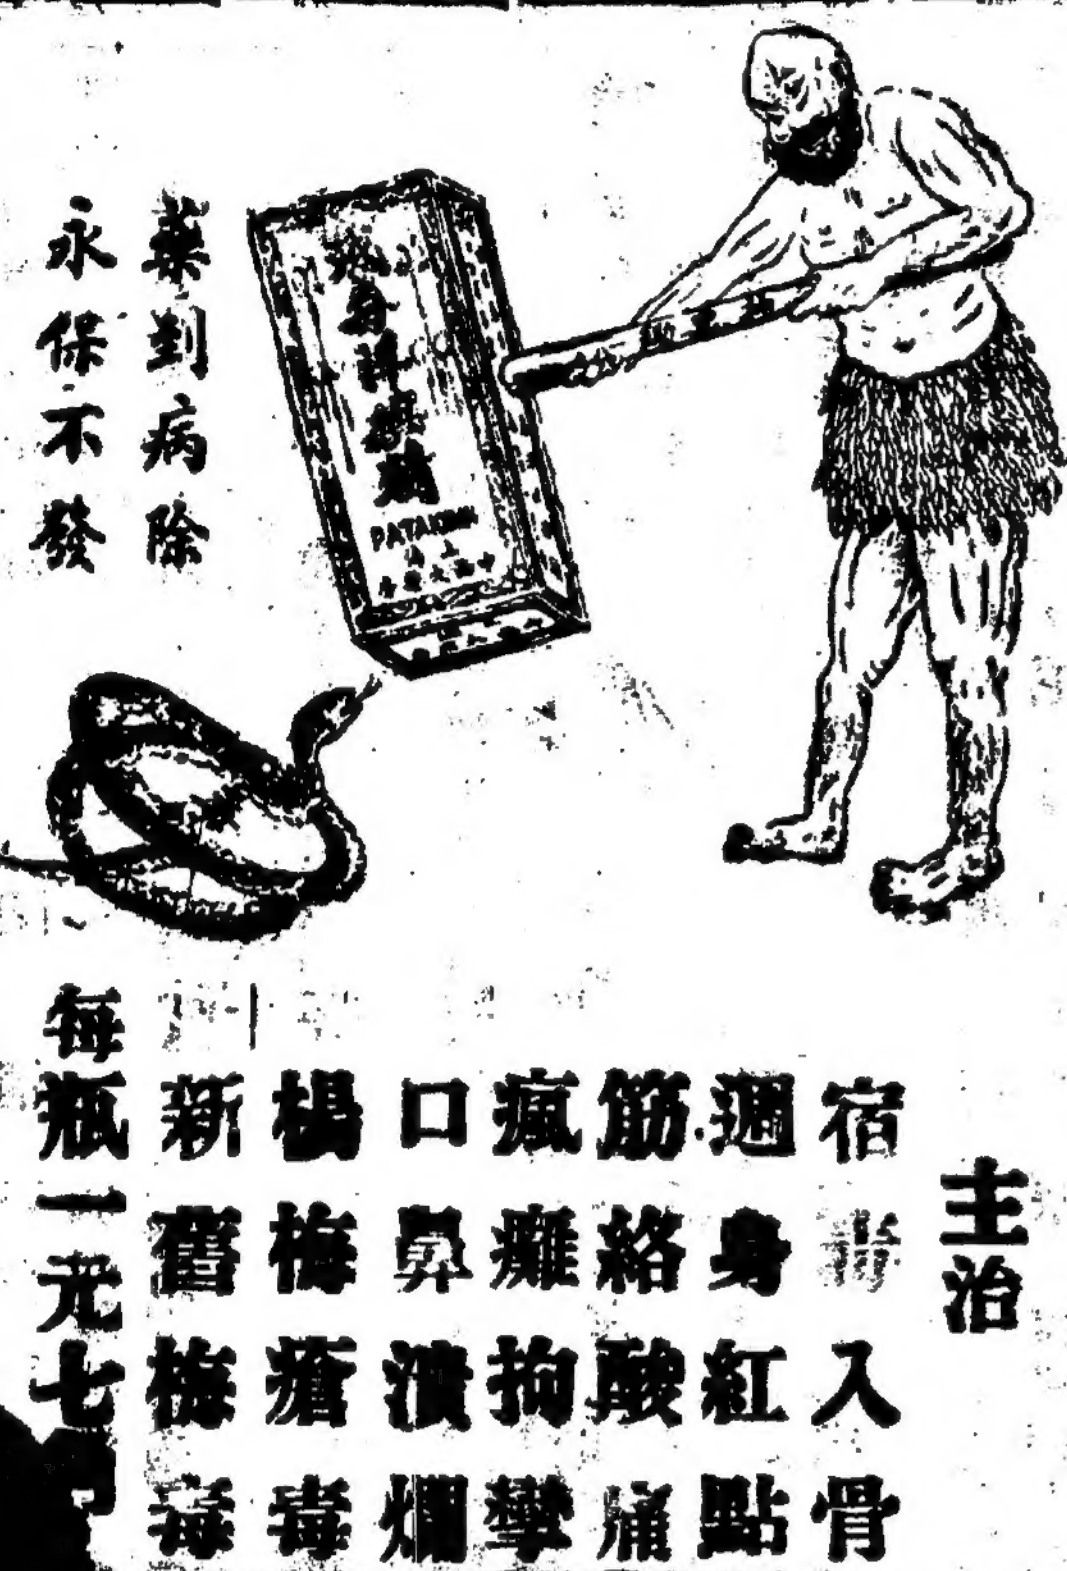 藥到病除
永保不發
PATAKINN
上海
主治
宿毒入骨
週身紅點
筋絡酸痛
瘋癱拘攣
口鼻潰爛
楊梅瘡毒
新舊梅毒
每瓶一元七